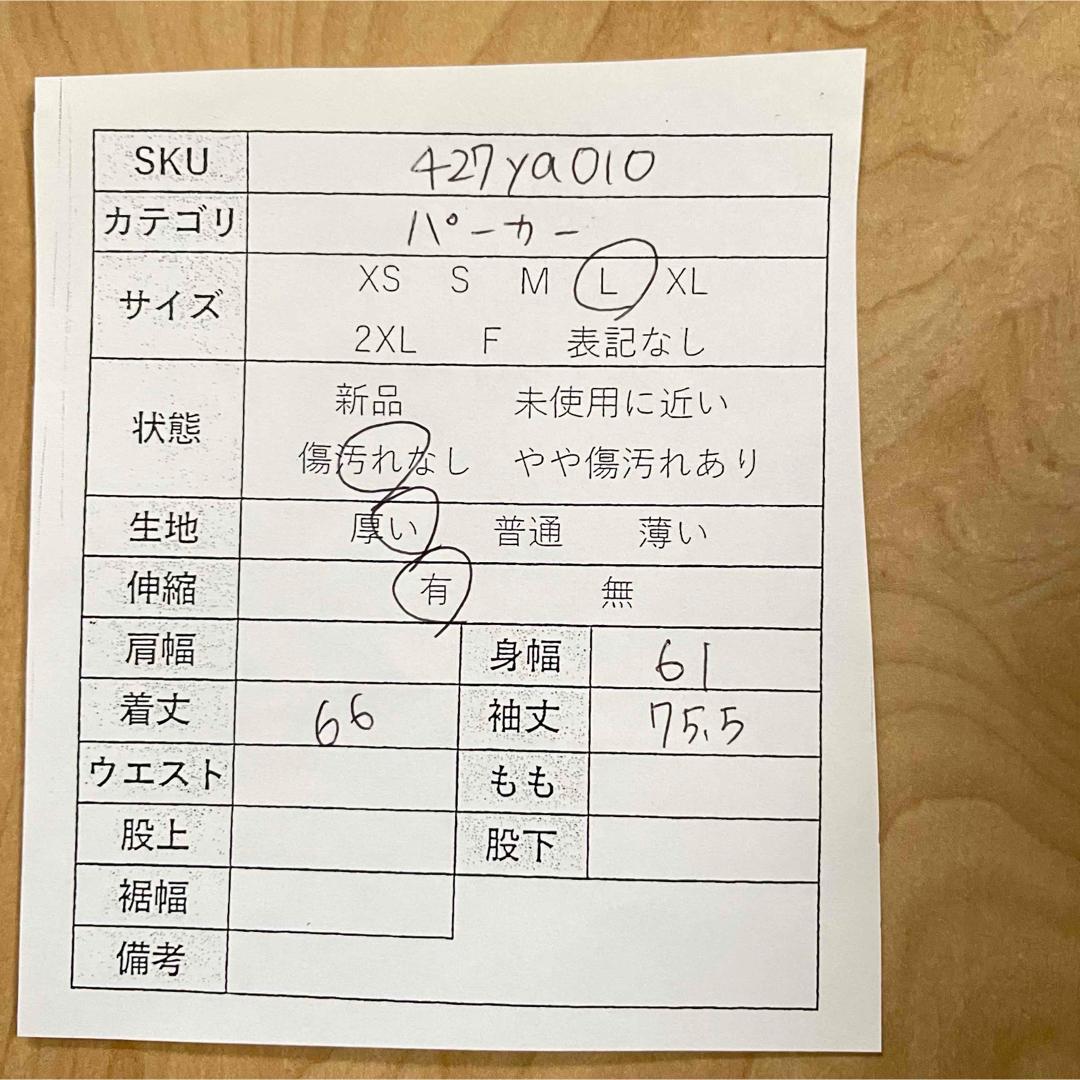 SKU 427ya010
カテゴリ パーカー
サイズ XS S M L XL
2XL F 表記なし
状態 新品 未使用に近い
傷汚れなし やや傷汚れあり
生地 厚い 普通 薄い
伸縮 有 無
肩幅 身幅 61
着丈 66 袖丈 75.5
ウエスト もも
股上 股下
裾幅
備考